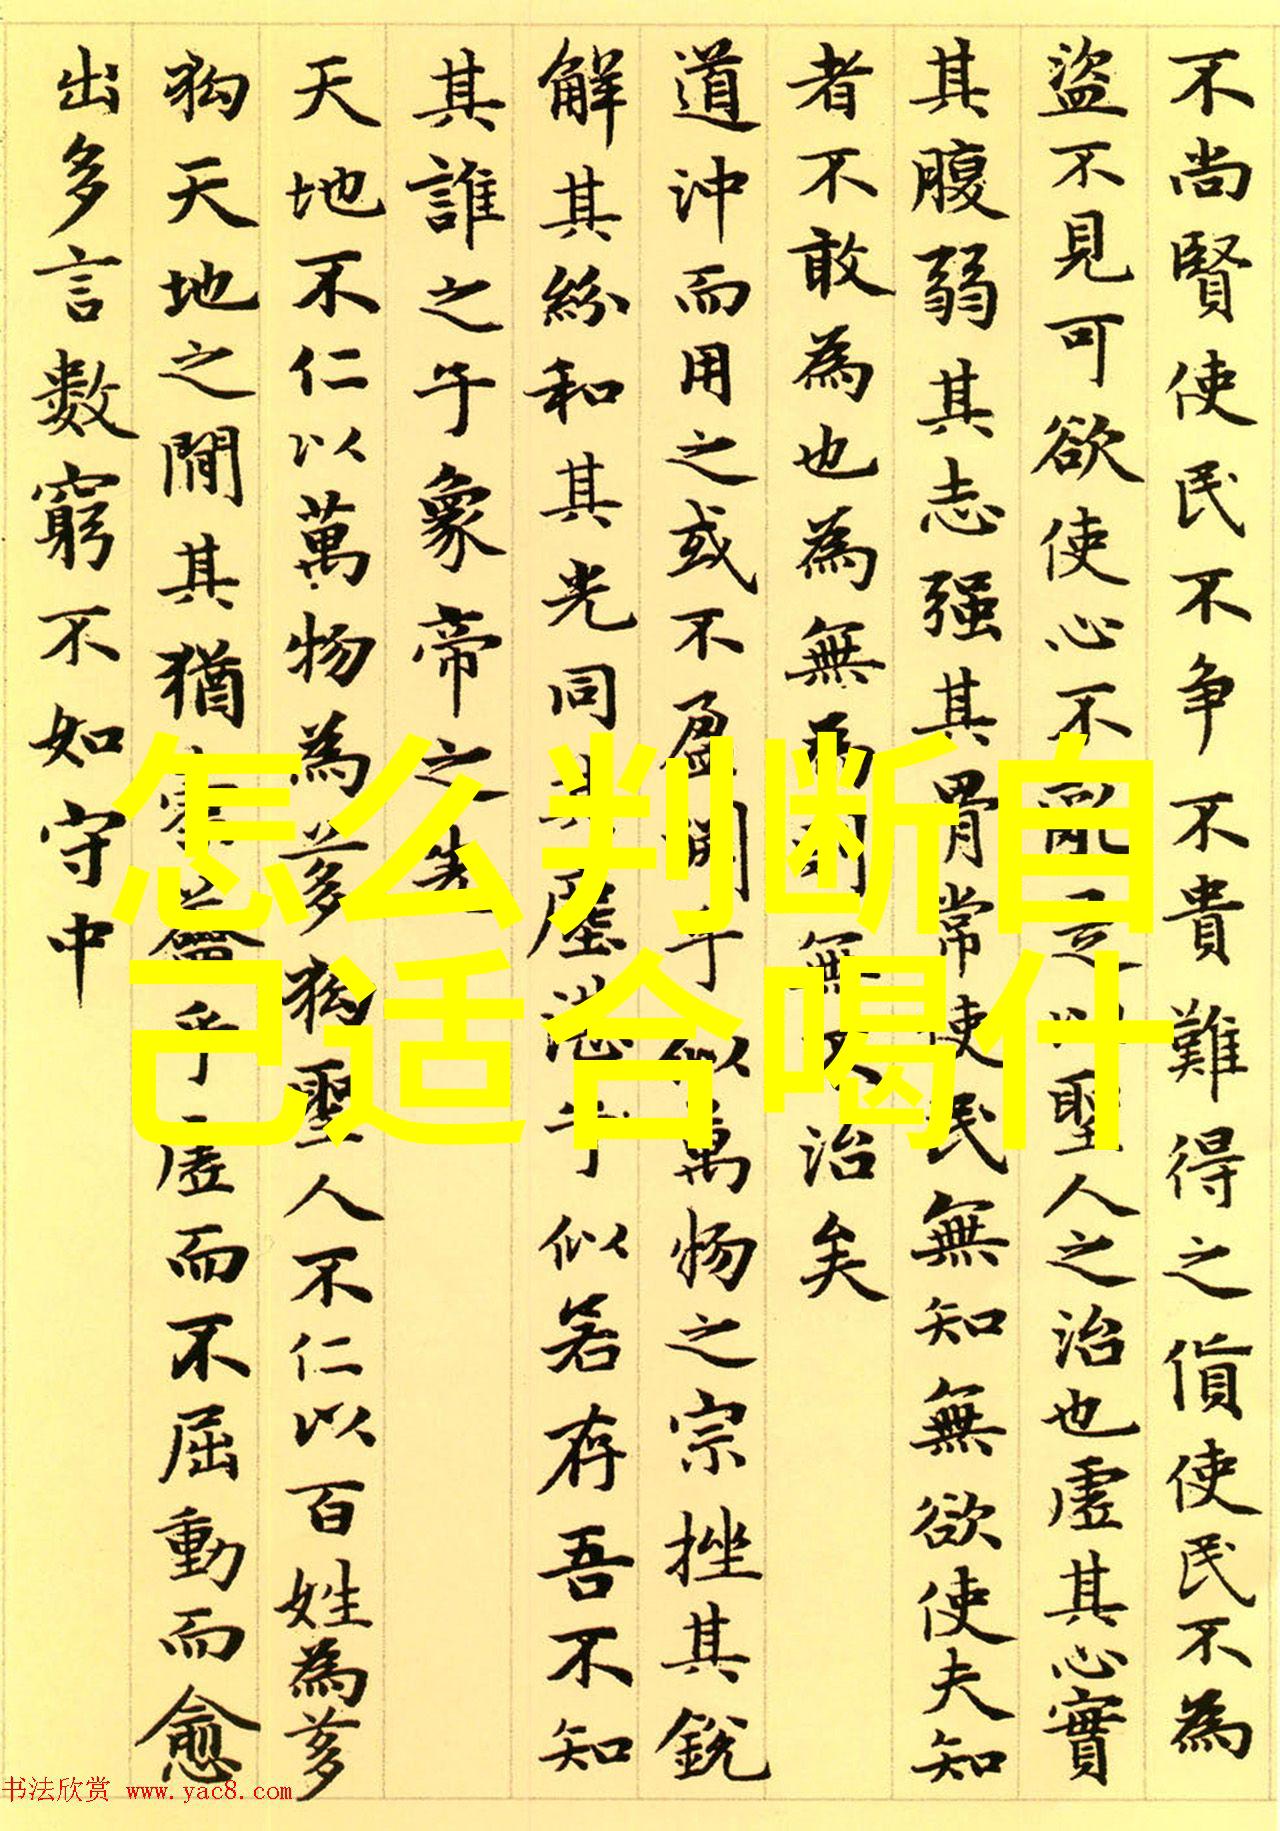 不尚賢使民不争不貴難得之貨使民不為
盜不見可欲使心不亂是以聖人之治也虛其心實
其腹弱其志强其骨常使民無知無欲使夫知
者不敢為也為無為則無不治矣
道沖而用之或不盈淵乎似萬物之宗挫其銳
解其紛和其光同其塵湛乎似若存吾不知
其誰之子象帝之先
天地不仁以萬物為芻狗聖人不仁以百姓為芻
狗天地之間其猶橐籥乎虛而不屈動而愈
出多言數窮不如守中
怎么判断自
己适合喝什
书法欣赏 www.yac8.com